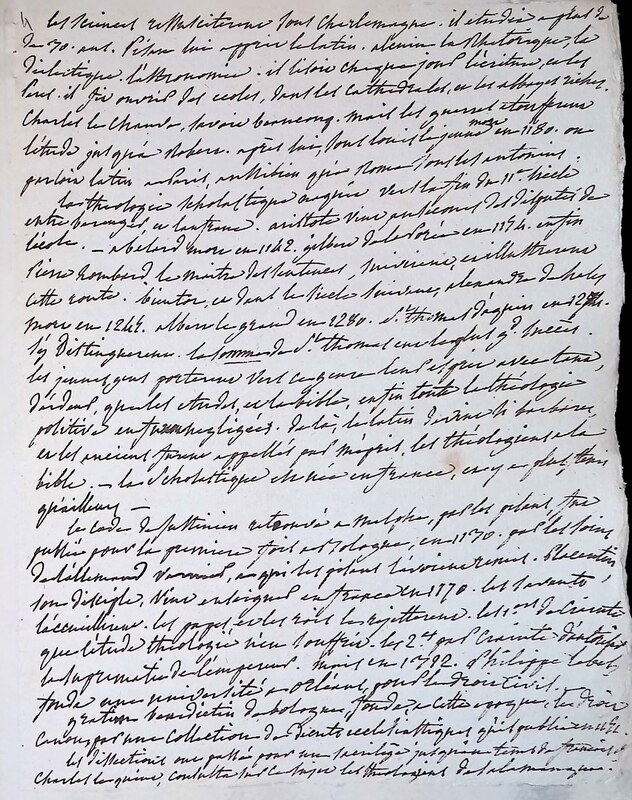 les sciences ressusciterent sous Charlemagne. il etudia a plus de
de 30. ans. Pierre lui apprit le latin. alcuin la Rhetorique, la
dialectique. l'astronomie. il lisoit chaque jour l'écriture, et les
Peres. il fit ouvrir des ecoles, dans les cathedrales, et les abbayes riches.
Charles le Chauve, savoit beaucoup. mais les guerres etoufferent
l'étude jusqu'à Robert. après lui, sous louis le jeune mort en 1180. on
parloit latin a Paris, aussi bien que Rome sous les antonins.
la theologie scholastique naquit vers la fin du 11e siecle
entre berenger, et lanfranc. aristote vint au secours des disputes de
l'ecole. — abelard mort en 1142. gilbert de la Porée en 1154. enfin
Pierre Lombard, le maitre des sentences, suivirent, et illustrerent
cette route. bientot, et dans le siecle suivant, alexandre de hales
mort en 1245. albert le grand en 1280. St thomas d'aquin en 1274.
s'y distinguerent. la somme de St thomas eut le plus gd succès.
les jeunes gens porterent vers ce genre leur esprit avec tant
d'ardeur, que les etudes, et la bible, enfin toute la théologie
positive en furent negligées. de là, le latin devint si barbare,
et les anciens furent appellés par mépris, les théologiens a la
bible. — la scholastique est née en france, et y a plus tenu
qu'ailleurs —
le code de Justinien retrouvé a melphe, par les pisans, fut
publié pour la premiere fois a Bologne, en 1130. par les soins
de l'allemand Vernier, a qui les pisans l'avoient remis. Placentin
son disciple, vint enseigner en france en 1170. les savants
l'accueillirent. les papes et les rois le rejetterent. les 1ers de crainte
que l'étude theologie n'en souffrit. les 2ds par crainte d'autoriser
la suprematie de l'empereur. mais en 1312. Philippe le bel
fonda une université a Orléans, pour le droit civil.
gratien benedictin de bologne, fonda a cette epoque, le droit
canon par une collection de decrets ecclesiastiques qu'il publia
les dissections ont passé pour un sacrilege jusqu'au tems de françois 1er
Charles le quint, consulta sur ce sujet les theologiens de salamanque.